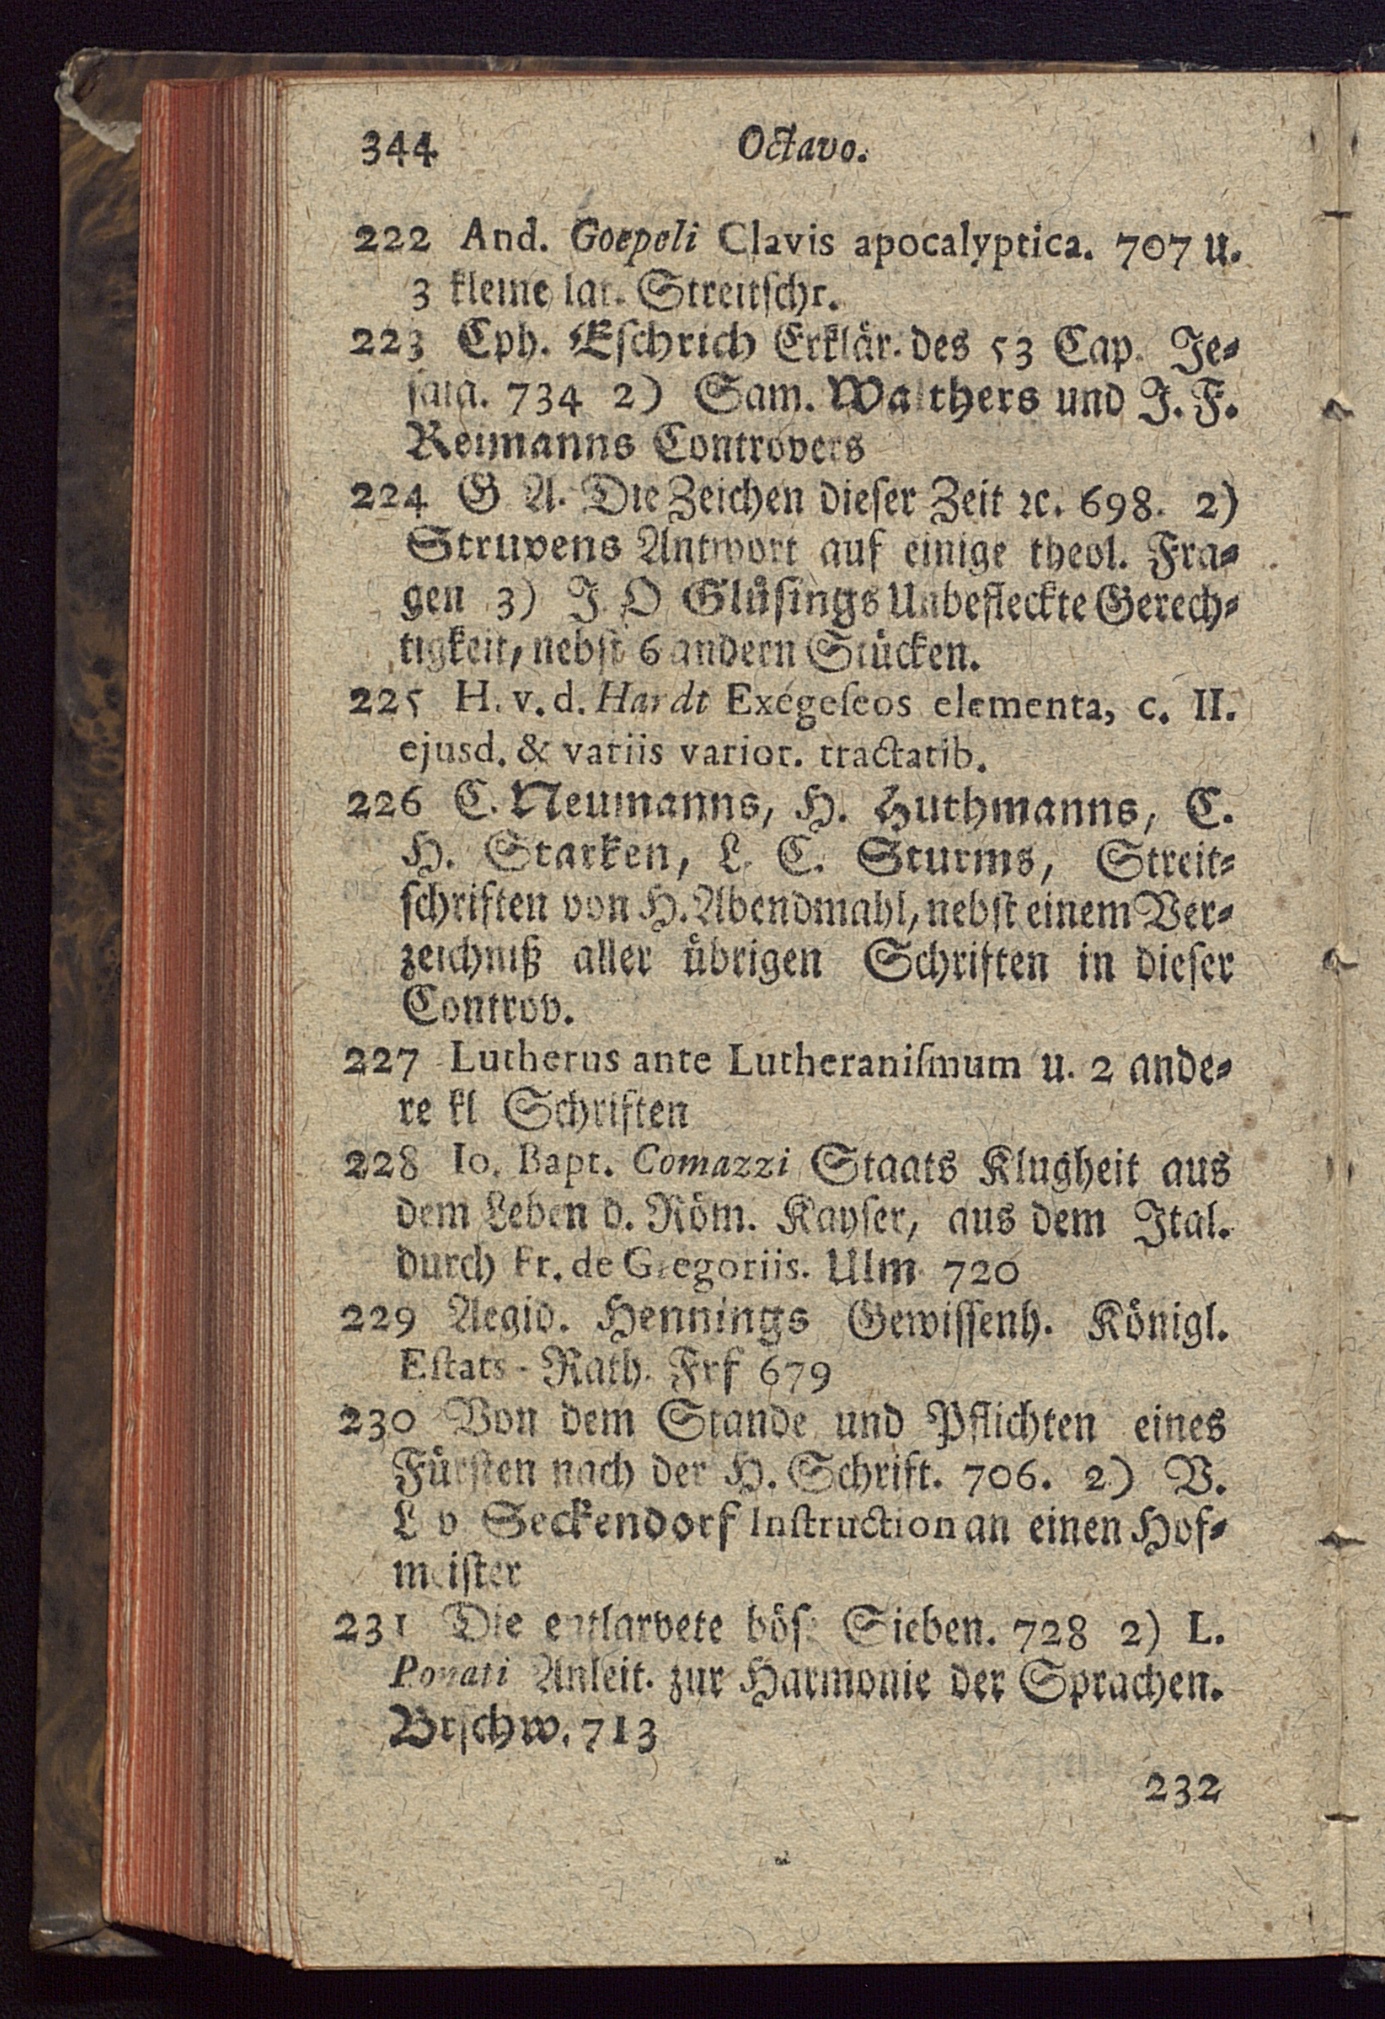 344 Octavo.
222 And. Goepeli Clavis apocalyptica. 707 u.
3 kleine lat. Streitschr.
223 Cph. Eschrich Erklär. des 53 Cap. Je-
saia. 734 2) Sam. Walthers und J. F.
Reimanns Controvers
224 G A. Die Zeichen dieser Zeit ꝛc. 698. 2)
Struvens Antwort auf einige theol. Fra-
gen 3) J. O Glüsings Unbefleckte Gerech-
tigkeit, nebst 6 andern Stücken.
225 H. v. d. Hardt Exegeseos elementa, c. II.
ejusd. & variis varior. tractatib.
226 C. Neumanns, H. Huthmanns, C.
H. Starken, L. C. Sturms, Streit-
schriften von H. Abendmahl, nebst einem Ver-
zeichniß aller übrigen Schriften in dieser
Controv.
227 Lutherus ante Lutheranismum u. 2 ande-
re kl Schriften
228 Io. Bapt. Comazzi Staats Klugheit aus
dem Leben d. Röm. Kayser, aus dem Ital.
durch Fr. de Gregoriis. Ulm 720
229 Aegid. Hennings Gewissenh. Königl.
Estats-Rath. Frf 679
230 Von dem Stande und Pflichten eines
Fürsten nach der H. Schrift. 706. 2) V.
L v Seckendorf Instruction an einen Hof-
meister
231 Die entlarvete böse Sieben. 728 2) L.
Ponati Anleit. zur Harmonie der Sprachen.
Brschw. 713
232